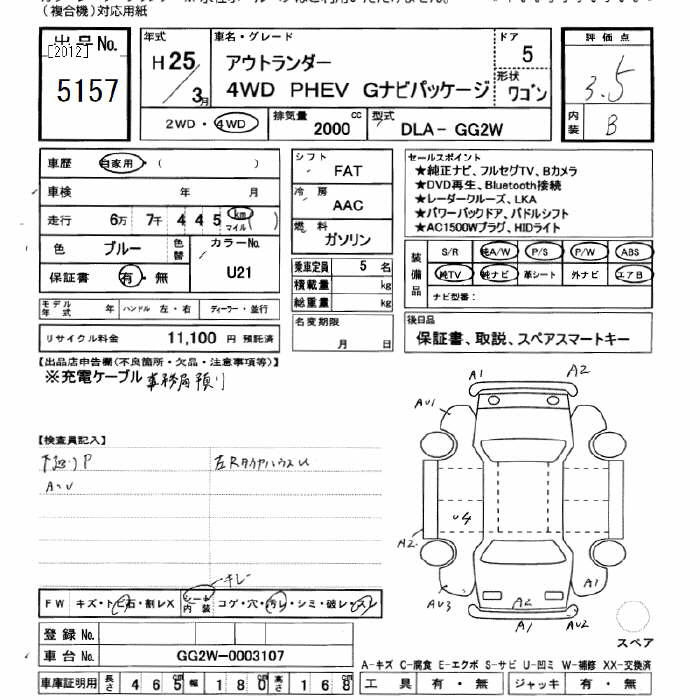 （複合機）対応用紙
出品No.
[2012]
5157
年式 H25/3月
車名・グレード
アウトランダー
4WD PHEV Gナビパッケージ
ドア 5
形状 ワゴン
評価点
3.5
内装 B
2WD・4WD
排気量 2000 cc
型式 DLA-GG2W
車歴 自家用・( )
車検 年 月
走行 6万 7千 4 4 5 km マイル ( )
色 ブルー 色替
カラーNo. U21
保証書 有・無
モデル年式 年 ハンドル 左・右 ディーラー・並行
リサイクル料金 11,100 円 預託済
シフト FAT
冷房 AAC
燃料 ガソリン
乗車定員 5 名
積載量 kg
総重量 kg
名変期限 月 日
セールスポイント
★純正ナビ、フルセグTV、Bカメラ
★DVD再生、Bluetooth接続
★レーダークルーズ、LKA
★パワーバックドア、パドルシフト
★AC1500Wプラグ、HIDライト
装備品
S/R 純A/W P/S P/W ABS
純TV 純ナビ 革シート 外ナビ エアB
ナビ型番：
後日品
保証書、取説、スペアスマートキー
【出品店申告欄(不良箇所・欠品・注意事項等)】
※充電ケーブル事務局預り
【検査員記入】
左Rタイヤハウス
A1 A2
AU1
U4
A2
A1
AU3
A2
A1 AU2
スペア
キレ
FW キズ・トビ石・割レX
シート内装 コゲ・穴・汚レ・シミ・破レ・スレ
登録No.
車台No. GG2W-0003107
A-キズ C-腐食 E-エクボ S-サビ U-凹ミ W-補修 XX-交換済
車庫証明用 長さ 4 6 5 cm 幅 1 8 0 cm 高さ 1 6 8 cm
工具 有・無 ジャッキ 有・無